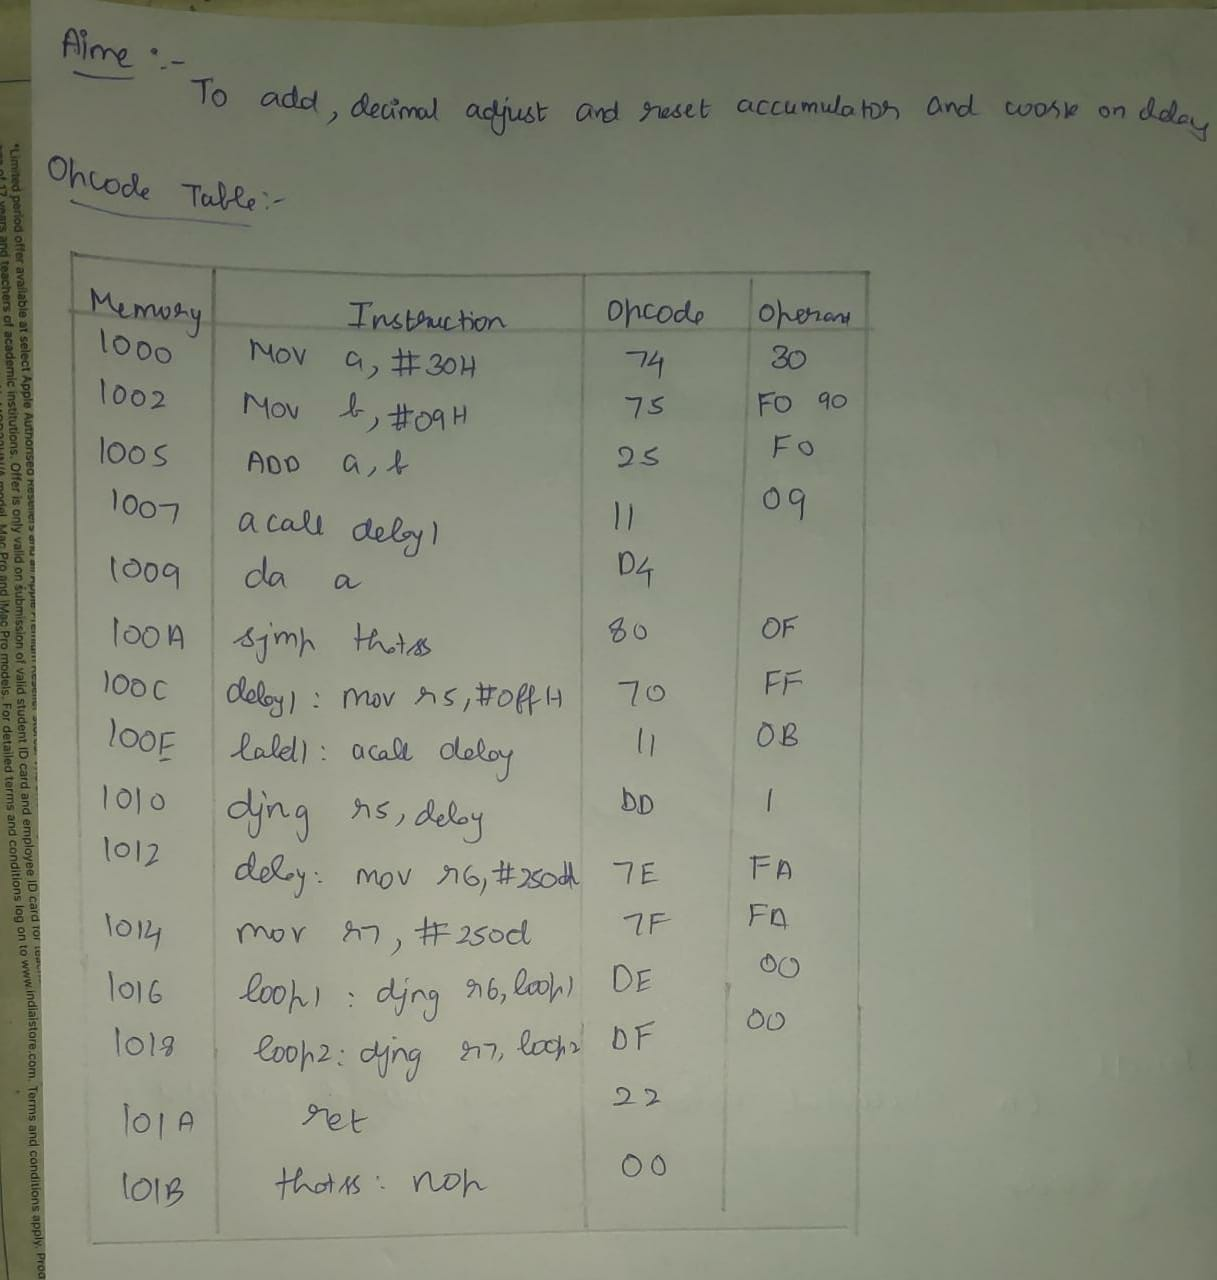 Aime :-
To add, decimal adjust and reset accumulator and work on delay
Opcode Table:-
Memory Instruction Opcode Operant
1000 Mov a, #30H 74 30
1002 Mov b, #09H 75 F0 90
1005 ADD a, b 25 F0
1007 acall delay1 11 09
1009 da a D4
100A sjmp thatss 80 0F
100C delay1: mov r5, #0ffH 70 FF
100E label1: acall delay 11 0B
1010 djnz r5, delay DD 1
1012 delay: mov r6, #250d 7E FA
1014 mov r7, #250d 7F FA
1016 loop1: djnz r6, loop1 DE 00
1018 loop2: djnz r7, loop2 DF 00
101A ret 22
101B thatss: nop 00
*Limited period offer available at select Apple Authorised Resellers and all Apple Premium Reseller stores.
of 17 years and teachers of academic institutions. Offer is only valid on submission of valid student ID card and employee ID card for
model, Mac Pro and iMac Pro models. For detailed terms and conditions log on to www.indiaistore.com. Terms and conditions apply.